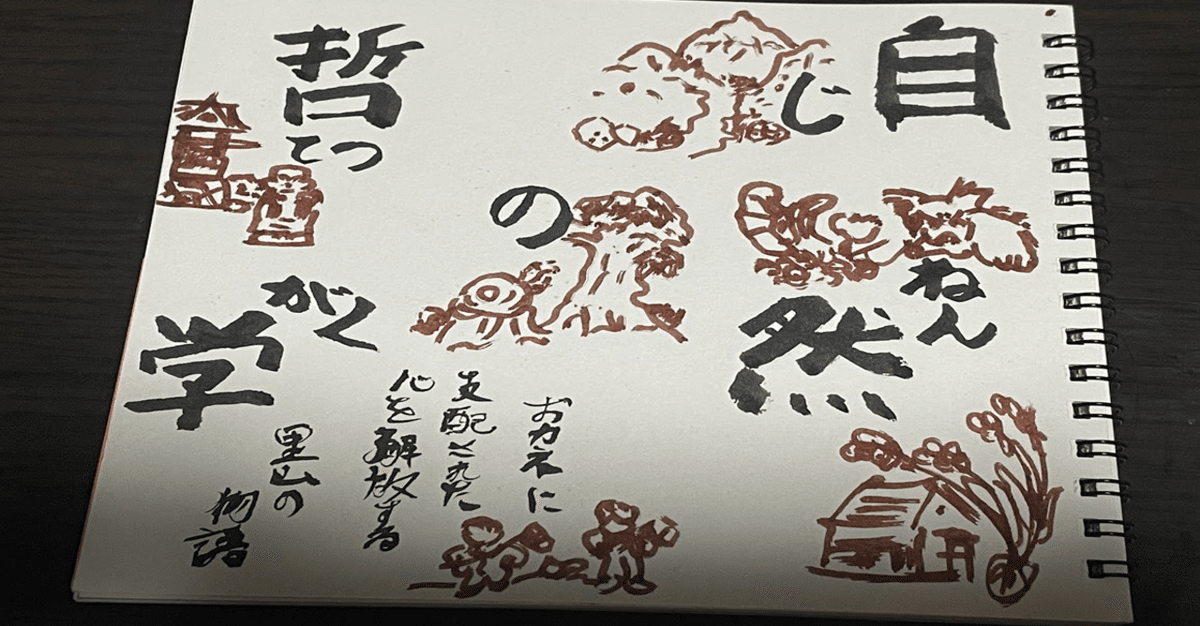 自然
じねん
の
哲学
てつがく
おカネに
支配された
心を解放する
里山の
物語